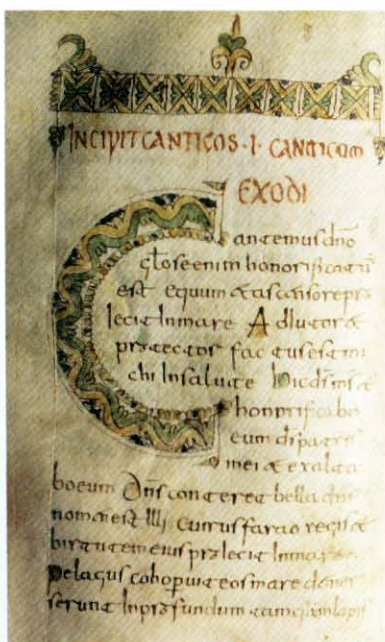 INCIPIT CANTICOS · I · CANTICUM
EXODI
Cantemus dno
gloseenim honorificatus
est equum & ascensore pro
iecit In mare Adiutor &
protector factus est mi
chi In salute hic ds ms &
honorificabo
eum ds patris
mei & exalta
bo eum Dns conteret bella dns
nom est Illi. Currus farao regis &
birtutem eius proiecit In mare
Pelagus cohoperuit eos mare
serunt In profundum tamquam lapis